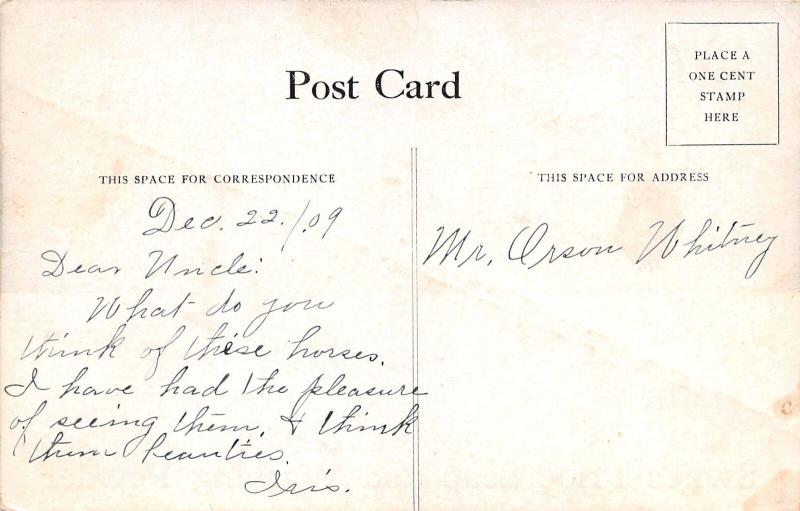 Post Card
PLACE A
ONE CENT
STAMP
HERE
THIS SPACE FOR CORRESPONDENCE
Dec. 22./09
Dear Uncle:
What do you
think of these horses.
I have had the pleasure
of seeing them, & think
them beauties.
Iris.
THIS SPACE FOR ADDRESS
Mr. Orson Whitney